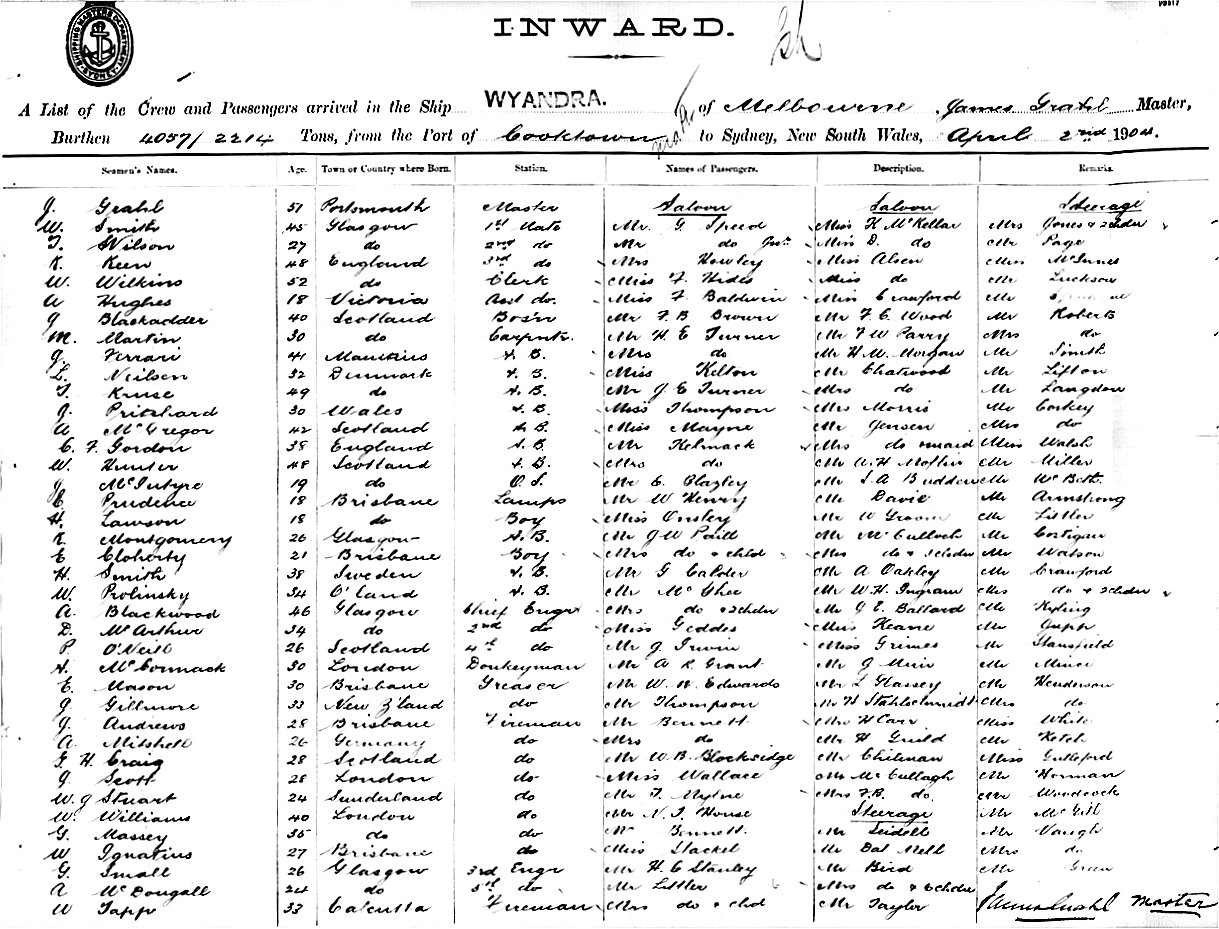 INWARD.
A List of the Crew and Passengers arrived in the Ship WYANDRA. of Melbourne James Grahl Master,
Burthen 4057/2214 Tons, from the Port of Cooktown to Sydney, New South Wales, April 2nd 1904.
Seamen's Names. Age. Town or Country where Born. Station. Names of Passengers. Description. Remarks.
J. Grahl 51 Portsmouth Master Saloon Saloon Steerage
W. Smith 45 Glasgow 1st Mate Mr. G. Speed Miss K McKellar Mrs Jones & 2 chdn
T. Wilson 27 do 2nd do Mr do Jnr. Miss D. do Mr Page
K. Keen 48 England 3rd do Mrs Howley Miss Alsen Miss McInnes
W. Wilkins 52 do Clerk Miss F. Hides Miss do Mr Luckson
A Hughes 18 Victoria Asst do. Miss F. Baldwin Miss Crawford Mr
J Blackadder 40 Scotland Bos'n Mr F. B Brown Mr F. C. Wood Mr Roberts
M. Martin 30 do Carpntr. Mr H. E Turner Mr F W Parry Mrs do
J. Ferrari 41 Mauritius A. B. Mrs do Mr H. M. Morgan Mr Smith
L. Neilsen 32 Denmark A. B. Miss Kelton Mr Chatwood Mr Lifton
T. Kruse 49 do A. B. Mr J E Turner Mrs do Mr Langdon
J. Pritchard 30 Wales A. B. Miss Thompson Mrs Morris Mr Corkey
A McGregor 42 Scotland A B. Miss Mayne Mr Jensen Mrs do
C. F. Gordon 38 England A. B. Mr Kelmack Mrs do maid Miss Walsh
W. Hunter 48 Scotland A. B. Mrs do Mr W. H Moffin Mr Miller
J McIntyre 19 do O. S. Mr C. Clagley Mr S. A Budden Mr McBeth.
E Prudence 18 Brisbane Lamps Mr W Henry Mr Davie Mr Armstrong
H. Lawson 18 do Boy Miss Onsley Mr W Groom Mr Littler
R. Montgomery 26 Glasgow A. B. Mr J W Paitt Mr McCulloch Mr Costigan
E Cloherty 21 Brisbane Boy Mrs do & child Mrs do & 3 chdn Mr Watson
H. Smith 38 Sweden A. B. Mr G Calder Mr A Oakley Mr Crawford
W. Prolinsky 34 O'land A. B. Mr McGhee Mr W. H. Ingram Mrs do & 2 chdn
A. Blackwood 46 Glasgow Chief Engr Mrs do & 2 chdn Mr J E. Ballard Mr Kyling
D. McArthur 34 do 2nd do Miss Geddes Miss Keane Mr Jupp
P. O'Neill 26 Scotland 4th do Mr J Irwin Miss Grimes Mr Stansfield
A. McCormack 30 London Donkeyman Mr A R Grant Mr J Muir Mr Miner
E. Mason 30 Brisbane Greaser Mr W. W. Edwards Mr L Glassey Mr Henderson
J. Gillmore 33 New Z'land do Mr Thompson Mr H Stahlschmidt Mrs do
J. Andrews 28 Brisbane Fireman Mr Bennett Mrs H Carr Miss White
A. Mitchell 26 Germany do Mrs do Mr H Guild Mr Ketch
G. H. Craig 28 Scotland do Mr W. B. Blocksidge Mr Chilman Miss Guilleford
J Scott 28 London do Miss Wallace Mr McCullagh Mr Horman
W. J Stuart 24 Sunderland do Mr T. Mylne Mrs F. B. do. Mr Woodcock
W. Williams 40 London do Mr N. T. House Steerage Mr McGill
G. Massey 35 do do Mr Bennett. Mr Leidell Mr Vaugh
W Ignatius 27 Brisbane do Miss Stackel Mr Dal Mell Mrs do
G. Small 26 Glasgow 3rd Engr Mr H. C Stanley Mr Bird Mr Green
A McDougall 24 do 5th do Mr Littler Mrs do & 6 chdn
W Tapp 33 Calcutta Fireman Mrs do & chd Mr Taylor James Grahl Master